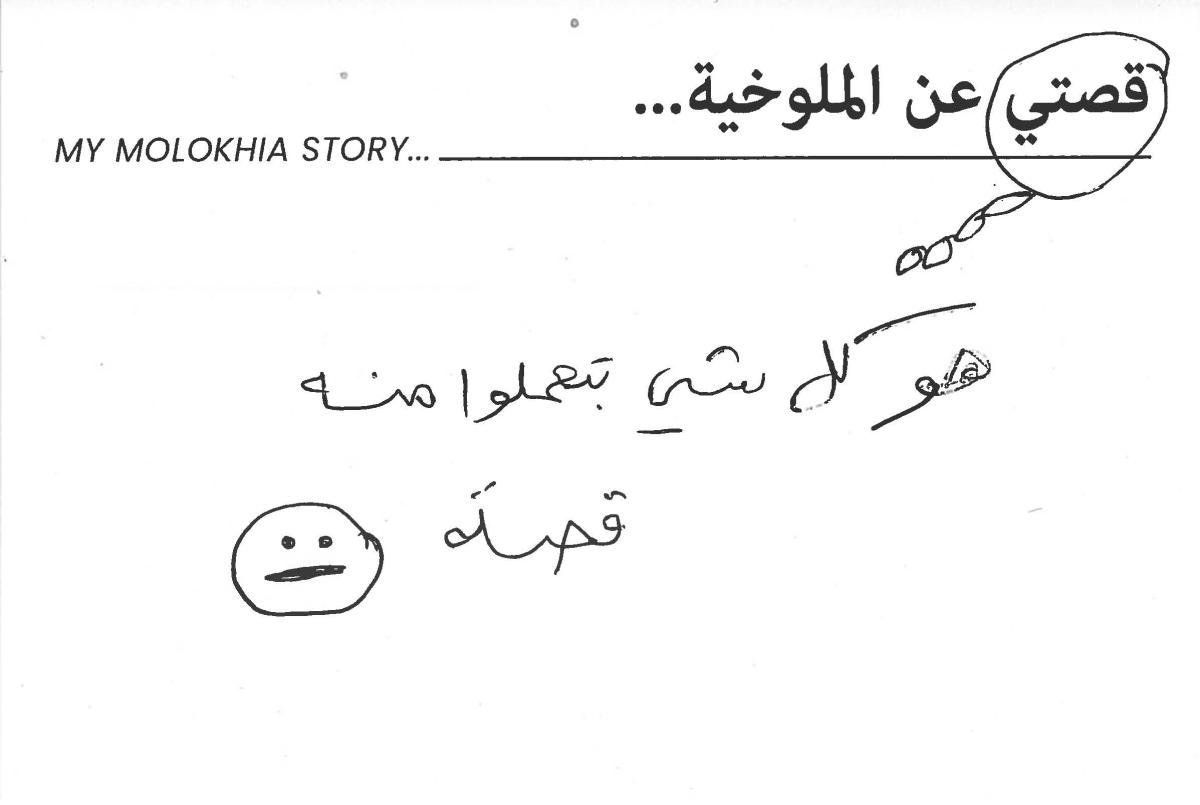 قصتي عن الملوخية...
MY MOLOKHIA STORY...
هو كل شي بتعملوا منه
قصة